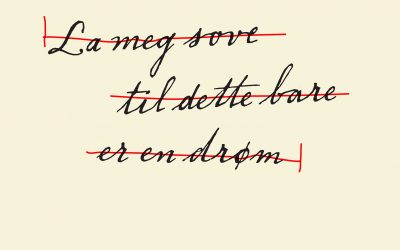 La meg sove
til dette bare
er en drøm